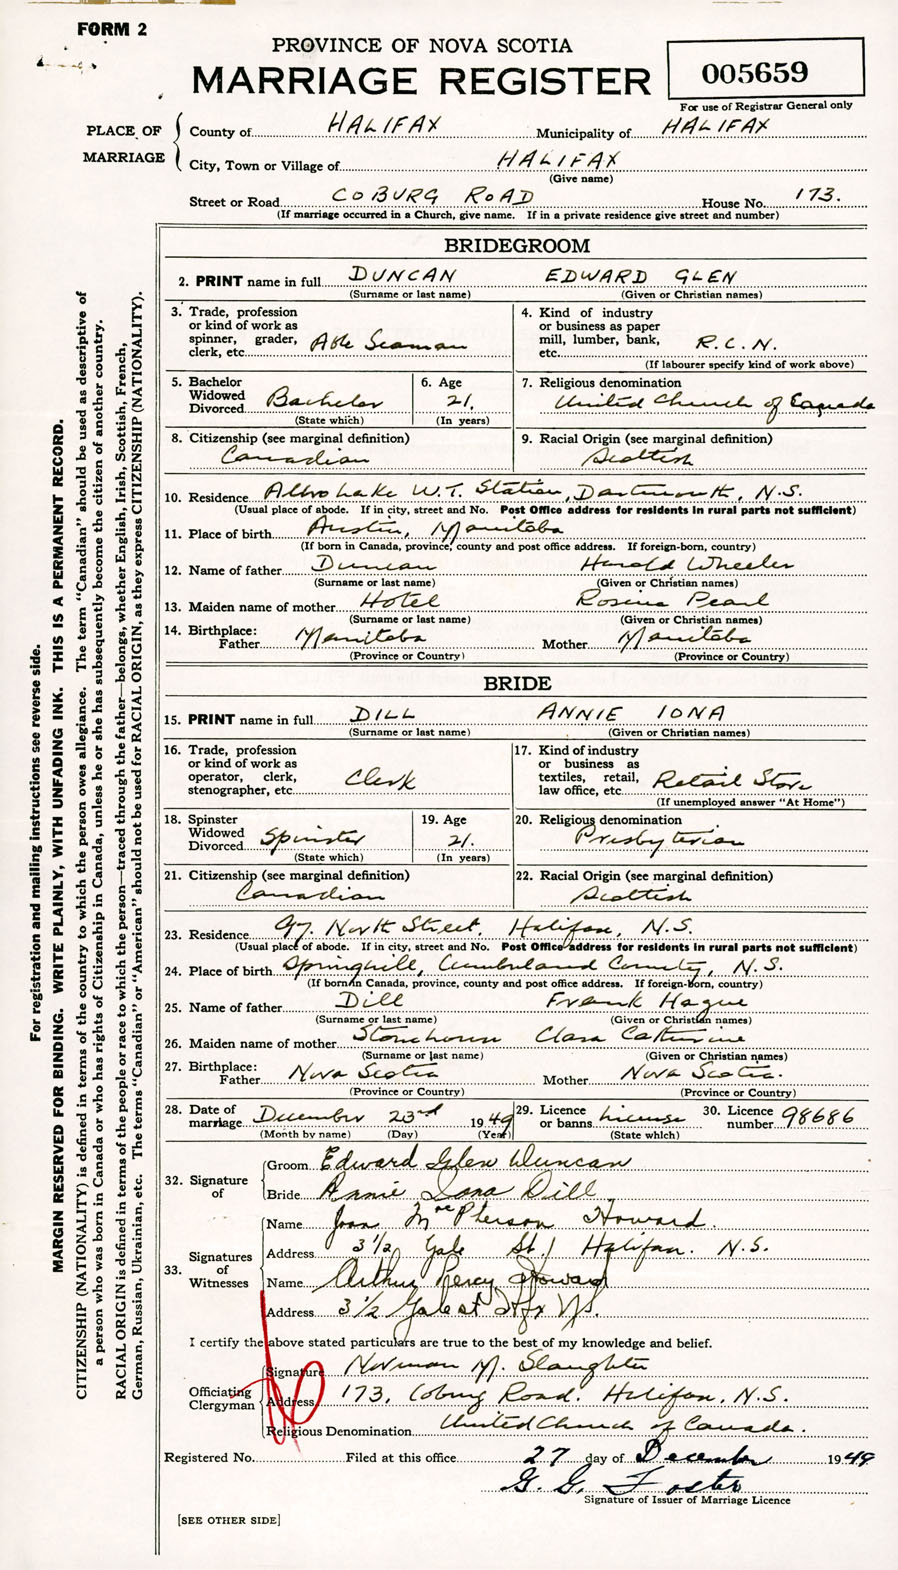 FORM 2
PROVINCE OF NOVA SCOTIA
MARRIAGE REGISTER
005659
For use of Registrar General only
PLACE OF MARRIAGE
County of HALIFAX Municipality of HALIFAX
City, Town or Village of HALIFAX
(Give name)
Street or Road COBURG ROAD House No. 173.
(If marriage occurred in a Church, give name. If in a private residence give street and number)
BRIDEGROOM
2. PRINT name in full DUNCAN EDWARD GLEN
(Surname or last name) (Given or Christian names)
3. Trade, profession or kind of work as spinner, grader, clerk, etc. Able Seaman
4. Kind of industry or business as paper mill, lumber, bank, etc. R.C.N.
(If labourer specify kind of work above)
5. Bachelor Widowed Divorced Bachelor
(State which)
6. Age 21.
(In years)
7. Religious denomination
United Church of Canada
8. Citizenship (see marginal definition)
Canadian
9. Racial Origin (see marginal definition)
Scottish
10. Residence Albro Lake W.T. Station, Dartmouth, N.S.
(Usual place of abode. If in city, street and No. Post Office address for residents in rural parts not sufficient)
11. Place of birth Austin, Manitoba
(If born in Canada, province, county and post office address. If foreign-born, country)
12. Name of father Duncan Harold Wheeler
(Surname or last name) (Given or Christian names)
13. Maiden name of mother Hotel Rosina Pearl
(Surname or last name) (Given or Christian names)
14. Birthplace: Father Manitoba Mother Manitoba
(Province or Country) (Province or Country)
BRIDE
15. PRINT name in full DILL ANNIE IONA
(Surname or last name) (Given or Christian names)
16. Trade, profession or kind of work as operator, clerk, stenographer, etc. Clerk
17. Kind of industry or business as textiles, retail, law office, etc. Retail Store
(If unemployed answer "At Home")
18. Spinster Widowed Divorced Spinster
(State which)
19. Age 21.
(In years)
20. Religious denomination
Presbyterian
21. Citizenship (see marginal definition)
Canadian
22. Racial Origin (see marginal definition)
Scottish
23. Residence 97. North Street, Halifax, N.S.
(Usual place of abode. If in city, street and No. Post Office address for residents in rural parts not sufficient)
24. Place of birth Springhill, Cumberland County, N.S.
(If born in Canada, province, county and post office address. If foreign-born, country)
25. Name of father Dill Frank Hague
(Surname or last name) (Given or Christian names)
26. Maiden name of mother Clara Catherine
(Surname or last name) (Given or Christian names)
27. Birthplace: Father Nova Scotia Mother Nova Scotia.
(Province or Country) (Province or Country)
28. Date of marriage December 23rd 1949
(Month by name) (Day) (Year)
29. Licence or banns License
(State which)
30. Licence number 98686
32. Signature of
Groom Edward Glen Duncan
Bride Annie Iona Dill
33. Signatures of Witnesses
Name Joan McPherson Howard.
Address 3 1/2 Yale St./ Halifax. N.S.
Name Arthur Percy Howard
Address 3 1/2 Yale st Hfx N.S.
I certify the above stated particulars are true to the best of my knowledge and belief.
Officiating Clergyman
Signature Norman M. Slaughter
Address 173, Coburg Road. Halifax, N.S.
Religious Denomination United Church of Canada.
Registered No. Filed at this office 27 day of December 1949
G. G. Foster
Signature of Issuer of Marriage Licence
[SEE OTHER SIDE]
For registration and mailing instructions see reverse side.
MARGIN RESERVED FOR BINDING. WRITE PLAINLY, WITH UNFADING INK. THIS IS A PERMANENT RECORD.
CITIZENSHIP (NATIONALITY) is defined in terms of the country to which the person owes allegiance. The term "Canadian" should be used as descriptive of
a person who was born in Canada or who has rights of Citizenship in Canada, unless he or she has subsequently become the citizen of another country.
RACIAL ORIGIN is defined in terms of the people or race to which the person—traced through the father—belongs, whether English, Irish, Scottish, French,
German, Russian, Ukrainian, etc. The terms "Canadian" or "American" should not be used for RACIAL ORIGIN, as they express CITIZENSHIP (NATIONALITY).